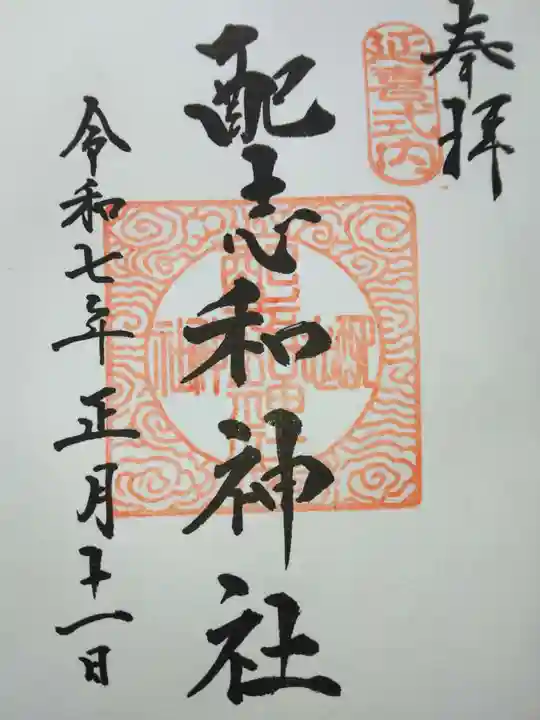 奉拝
延喜式内
配志和神社
令和七年正月十一日